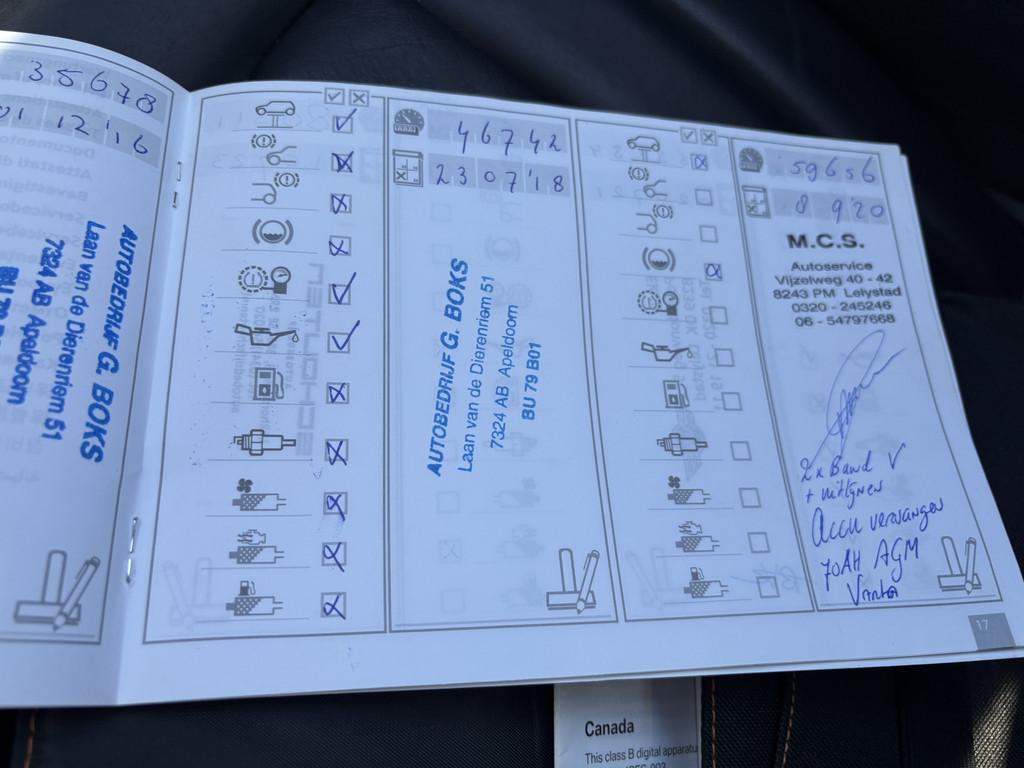 35678
01 12 '16
AUTOBEDRIJF G. BOKS
Laan van de Dierenriem 51
7324 AB Apeldoorn
46742
23 07 '18
AUTOBEDRIJF G. BOKS
Laan van de Dierenriem 51
7324 AB Apeldoorn
BU 79 B01
59656
8 9 '20
M.C.S.
Autoservice
Vijzelweg 40 - 42
8243 PM Lelystad
0320 - 245246
06 - 54797668
2x Band V
+ uitlijnen
Accu vervangen
70AH AGM
Varta
17
Canada
This class B digital apparatu